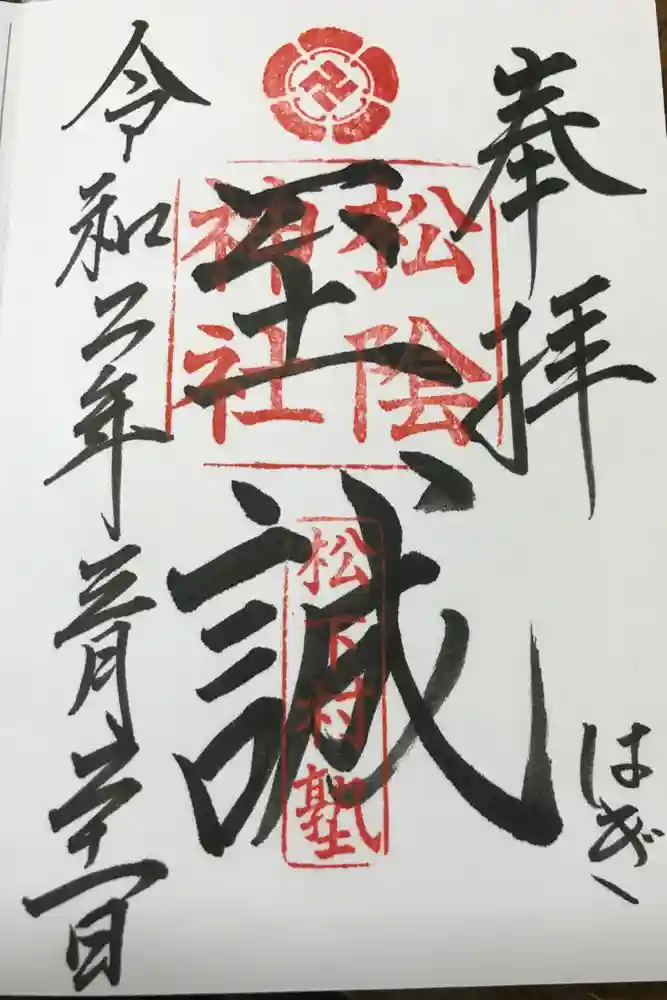 奉拝
はぎ
松陰
神社
至誠
松下村塾
令和二年三月二十一日